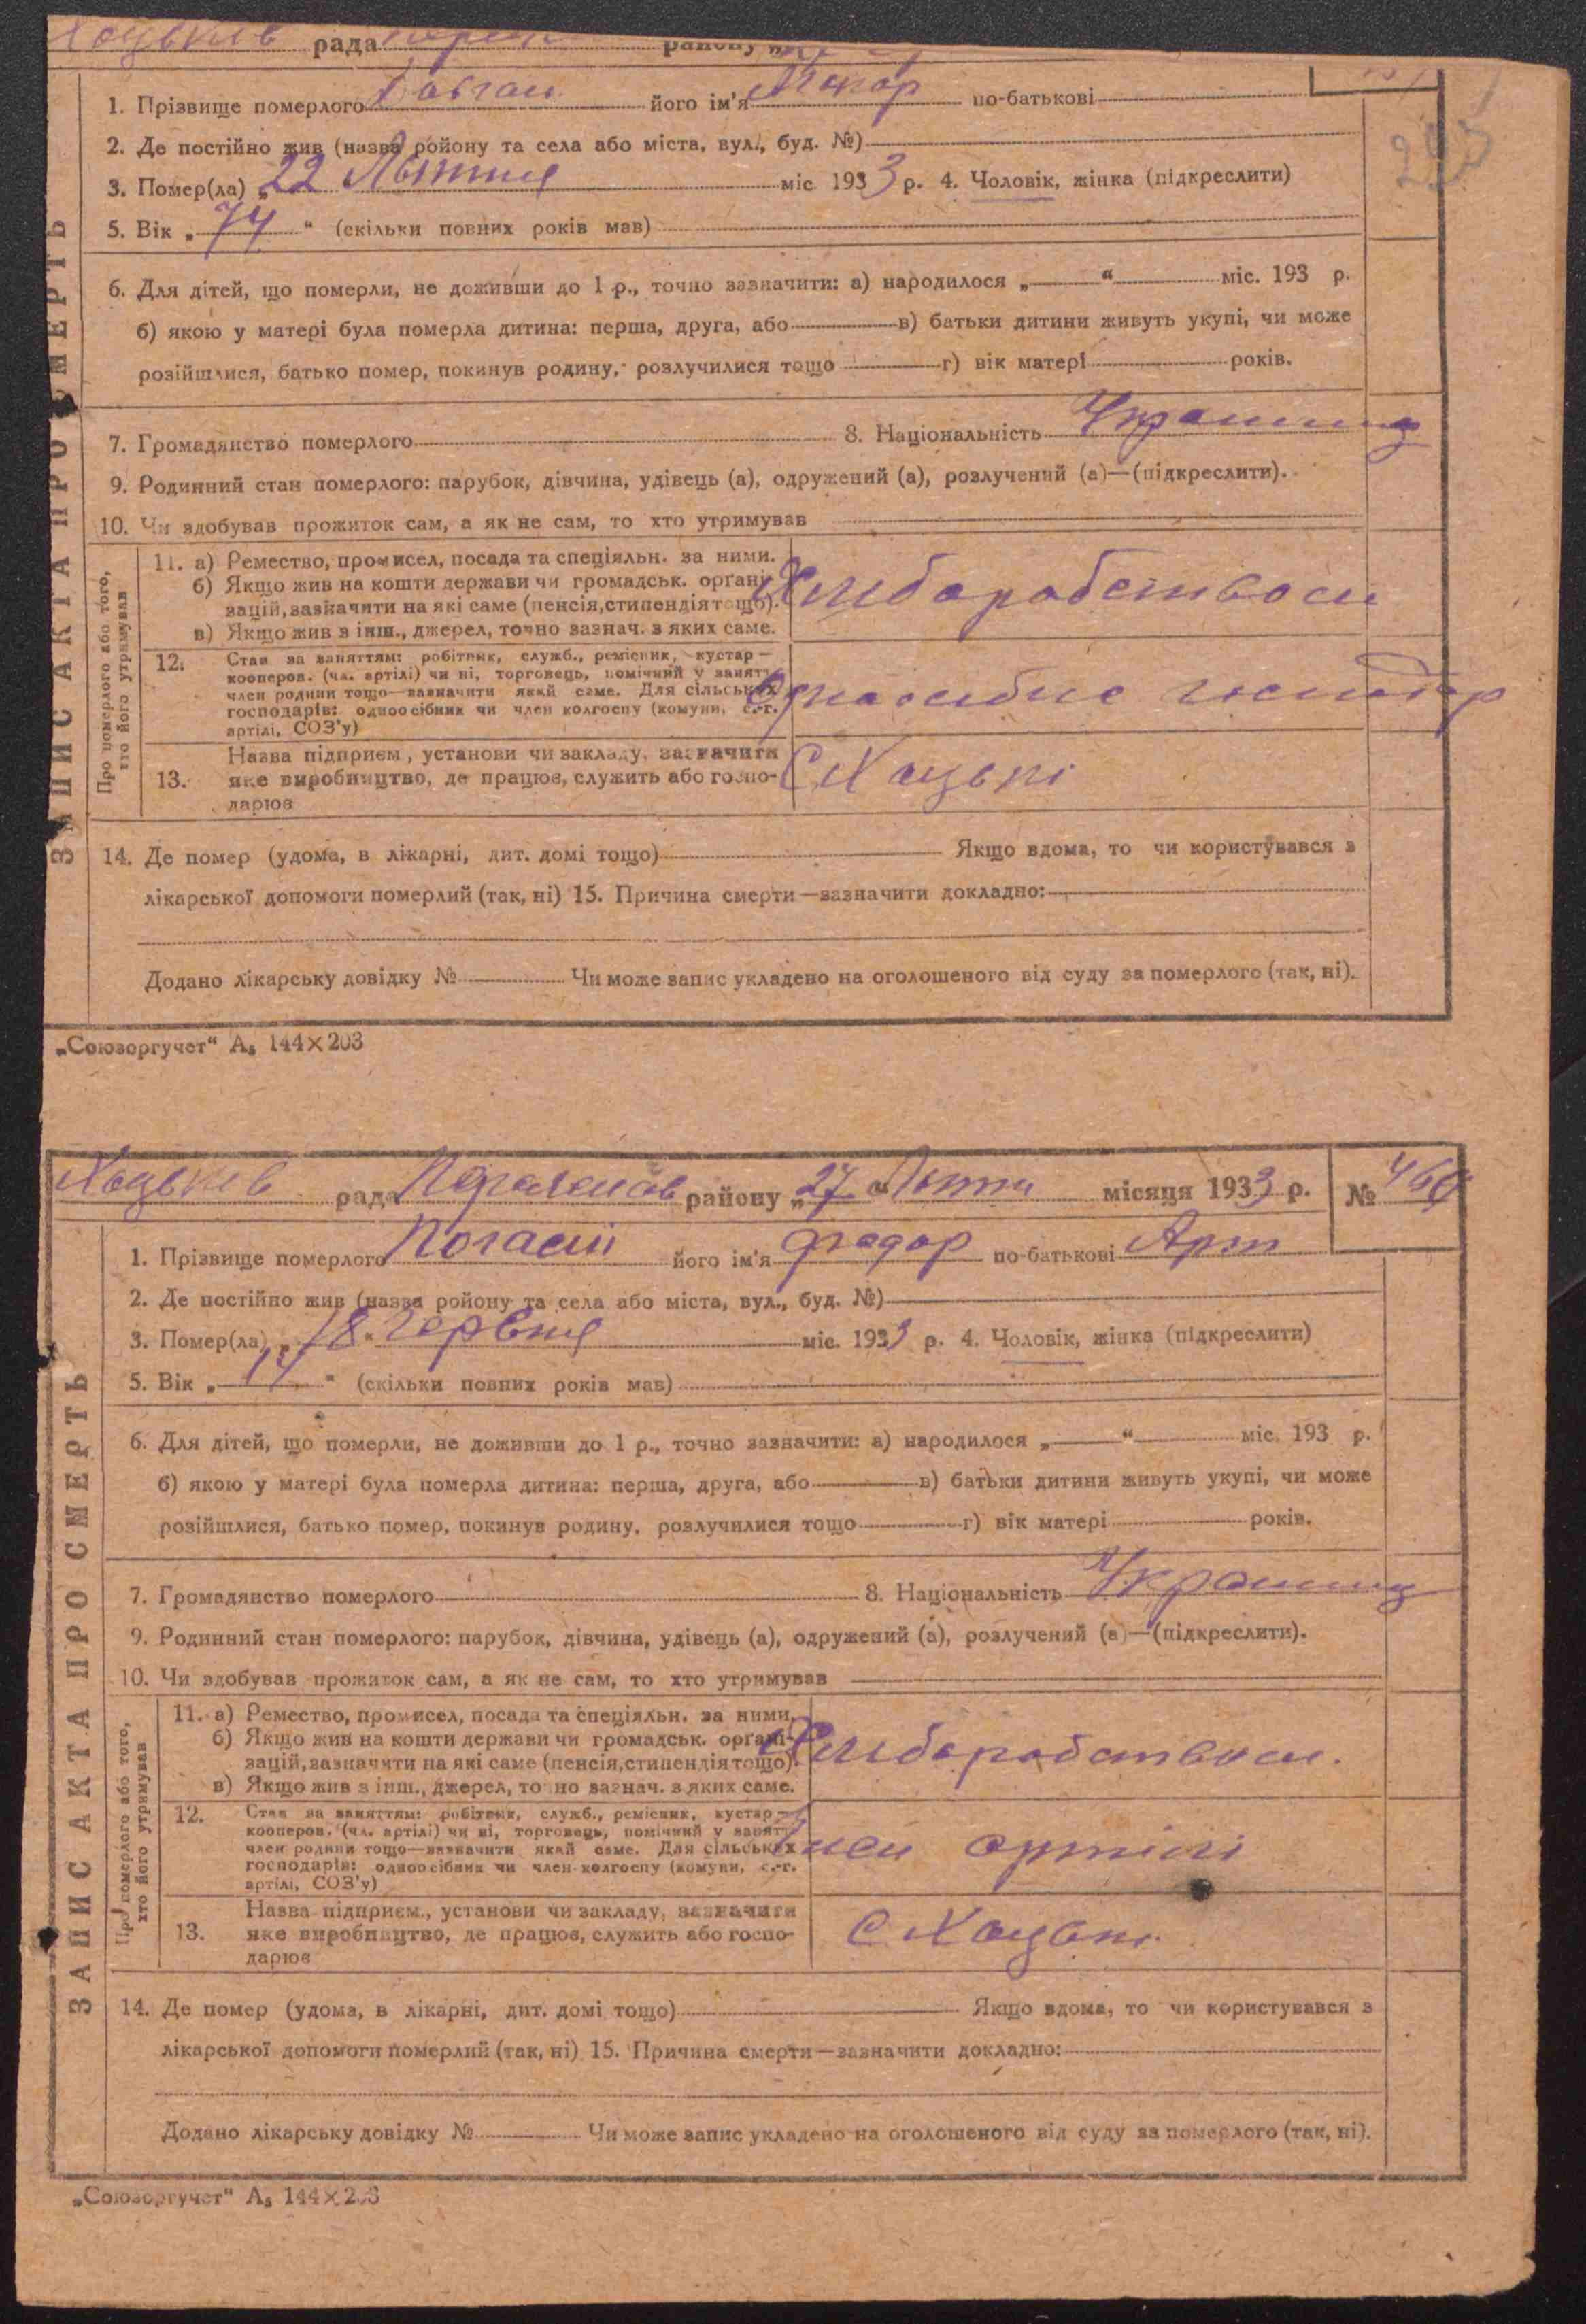 рада району
1. Прізвище померлого його ім'я Макар по-батькові
2. Де постійно жив (назва ройону та села або міста, вул., буд. №)
3. Помер(ла) „22 Лютня міс 1933 р. 4. Чоловік, жінка (підкреслити)
5. Вік „74“ (скільки повних років мав)
6. Для дітей, що померли, не доживши до 1 р., точно зазначити: а) народилося „ “ міс. 193 р.
б) якою у матері була померла дитина: перша, друга, або в) батьки дитини живуть укупі, чи може
розійшлися, батько помер, покинув родину, розлучилися тощо г) вік матері років.
7. Громадянство померлого 8. Національність Украинец
9. Родинний стан померлого: парубок, дівчина, удівець (а), одружений (а), розлучений (а)—(підкреслити).
10. Чи здобував прожиток сам, а як не сам, то хто утримував
ЗАПИС АКТА ПРО СМЕРТЬ
Про померлого або того, хто його утримував
11. а) Ремество, промисел, посада та спеціяльн. за ними.
б) Якщо жив на кошти держави чи громадськ. організацій, зазначити на які саме (пенсія, стипендія тощо).
в) Якщо жив з інш., джерел, точно зазнач. з яких саме.
Хлибаробством
12. Стан за заняттям: робітник, служб., ремісник, кустар—
кооперов. (чл. артілі) чи ні, торговець, помічний у занятт
член родини тощо—зазначити який саме. Для сільських
господарів: одноосібник чи член колгоспу (комуни, с.-г.
артілі, СОЗ'у)
13. Назва підприєм., установи чи закладу, зазначити
яке виробництво, де працює, служить або госпо-
дарює
С Хацьки
14. Де помер (удома, в лікарні, дит. домі тощо) Якщо вдома, то чи користувався з
лікарської допомоги померлий (так, ні) 15. Причина смерти—зазначити докладно:
Додано лікарську довідку № Чи може запис укладено на оголошеного від суду за померлого (так, ні).
„Союзоргучет“ А₅ 144×203
Хацьків рада району „27“ Лютня місяця 1933 р. №
1. Прізвище померлого його ім'я Федор по-батькові Арт
2. Де постійно жив (назва ройону та села або міста, вул., буд. №)
3. Помер(ла) „18“ Червня міс. 1933 р. 4. Чоловік, жінка (підкреслити)
5. Вік „14“ (скільки повних років мав)
6. Для дітей, що померли, не доживши до 1 р., точно зазначити: а) народилося „ “ міс. 193 р.
б) якою у матері була померла дитина: перша, друга, або в) батьки дитини живуть укупі, чи може
розійшлися, батько помер, покинув родину, розлучилися тощо г) вік матері років.
7. Громадянство померлого 8. Національність Украинец
9. Родинний стан померлого: парубок, дівчина, удівець (а), одружений (а), розлучений (а)—(підкреслити).
10. Чи здобував прожиток сам, а як не сам, то хто утримував
ЗАПИС АКТА ПРО СМЕРТЬ
Про померлого або того, хто його утримував
11. а) Ремество, промисел, посада та спеціяльн. за ними.
б) Якщо жив на кошти держави чи громадськ. органі-
зацій, зазначити на які саме (пенсія, стипендія тощо).
в) Якщо жив з інш., джерел, точно зазнач. з яких саме.
Хлибаробством.
12. Стан за заняттям: робітник, служб., ремісник, кустар—
кооперов. (чл. артілі) чи ні, торговець, помічний у занятт
член родини тощо—зазначити який саме. Для сільських
господарів: одноосібник чи член колгоспу (комуни, с.-г.
артілі, СОЗ'у)
Член артілі
13. Назва підприєм., установи чи закладу, зазначити
яке виробництво, де працює, служить або госпо-
дарює
С Хацьки
14. Де помер (удома, в лікарні, дит. домі тощо) Якщо вдома, то чи користувався з
лікарської допомоги померлий (так, ні) 15. Причина смерти—зазначити докладно:
Додано лікарську довідку № Чи може запис укладено на оголошеного від суду за померлого (так, ні).
„Союзоргучет“ А₅ 144×203